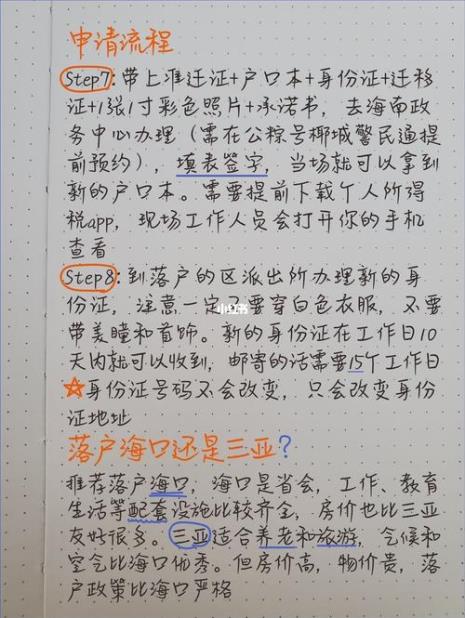 申请流程
Step7:带上准迁证+户口本+身份证+迁移
证+1张1寸彩色照片+承诺书,去海南政
务中心办理(需在公粽号椰城警民通提
前预约),填表签字,当场就可以拿到
新的户口本。需要提前下载个人所得
税app,现场工作人员会打开你的手机
查看
Step8:到落户的区派出所办理新的身
份证,注意一定不要穿白色衣服,不要
带美瞳和首饰。新的身份证在工作日10
天内就可以收到,邮寄的话需要15个工作日
☆身份证号码不会改变,只会改变身份
证地址
小红书
落户海口还是三亚?
推荐落户海口,海口是省会,工作、教育
生活等配套设施比较齐全,房价也比三亚
友好很多。三亚适合养老和旅游,气候和
空气比海口优秀。但房价高,物价贵,落
户政策比海口严格